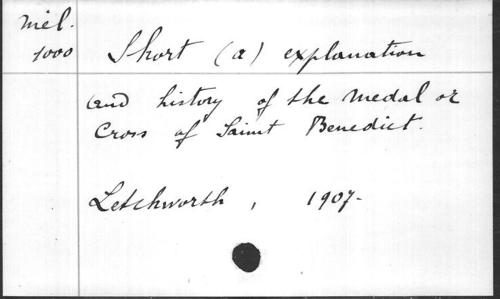 Mél.
1000
Short (a) explanation
and history of the medal or
Cross of Saint Benedict.
Letchworth, 1907.